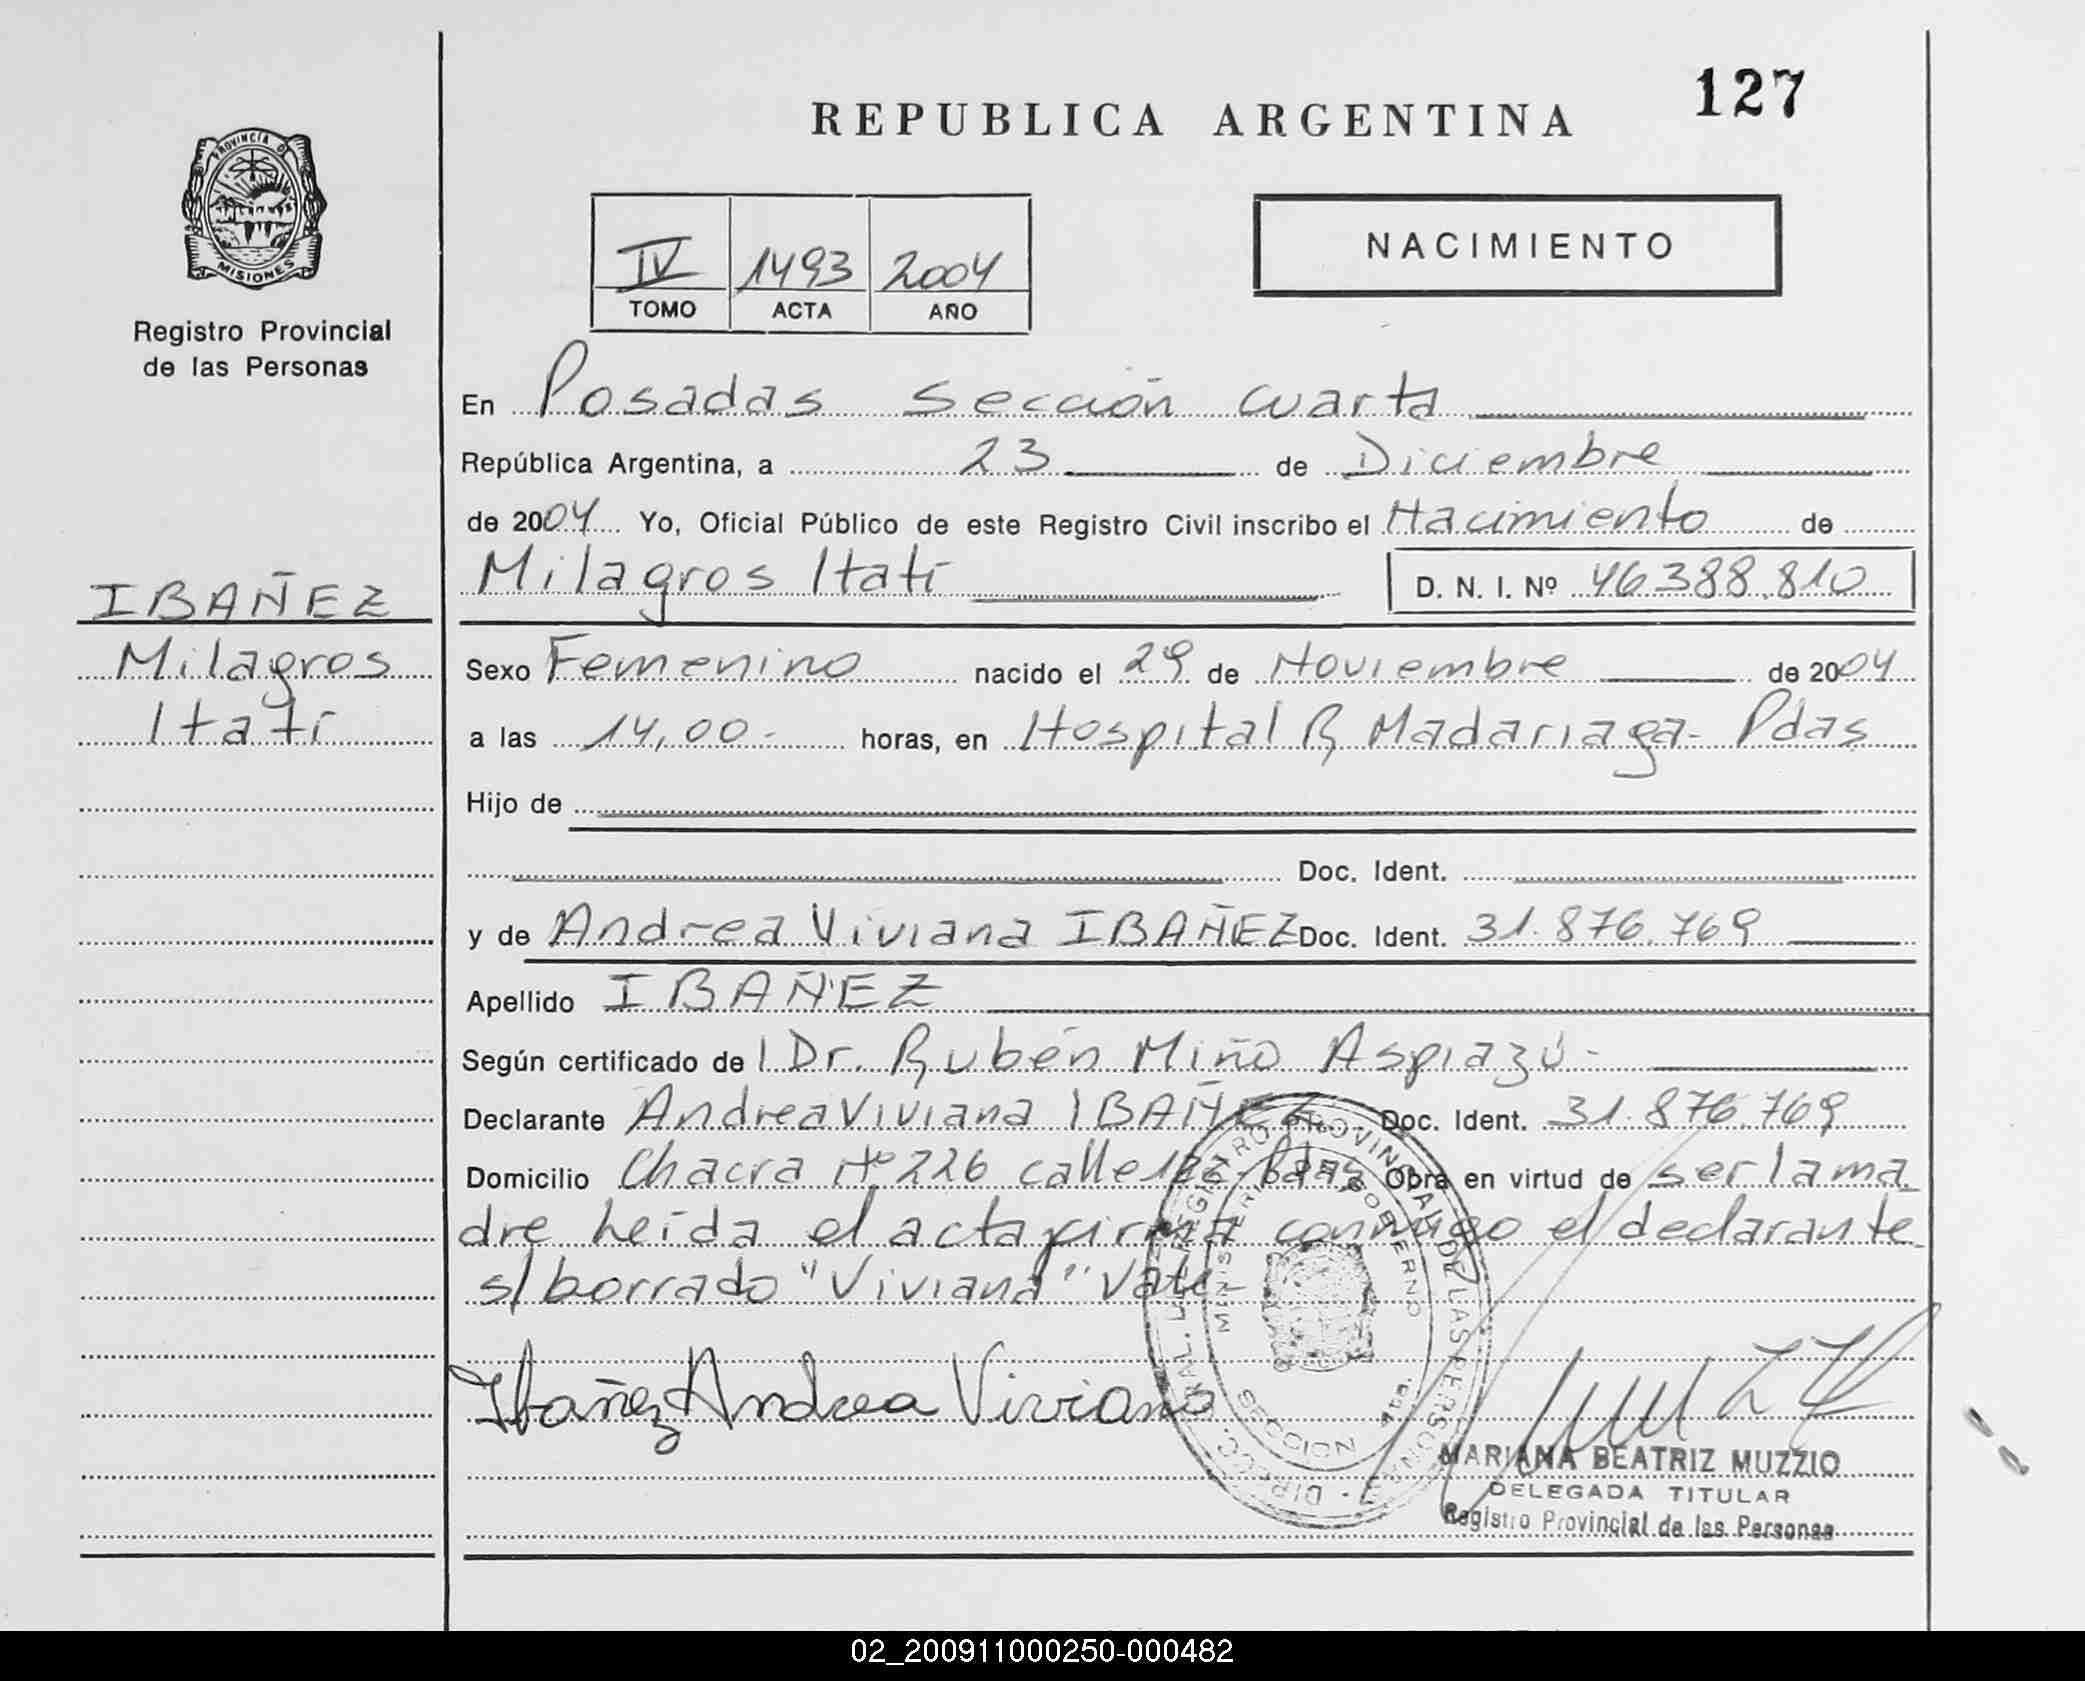 127
REPUBLICA ARGENTINA
PROVINCIA D
MISIONES
Registro Provincial
de las Personas
IV 1493 2004
TOMO ACTA AÑO
NACIMIENTO
En Posadas Sección Cuarta
República Argentina, a 23 de Diciembre
de 2004 Yo, Oficial Público de este Registro Civil inscribo el Nacimiento de
Milagros Itatí D. N. I. Nº 46388.810
IBAÑEZ
Milagros
Itatí
Sexo Femenino nacido el 29 de Noviembre de 2004
a las 14,00- horas, en Hospital R Madariaga- Pdas
Hijo de
Doc. Ident.
y de Andrea Viviana IBAÑEZ Doc. Ident. 31.876.769
Apellido IBAÑEZ
Según certificado del Dr. Rubén Miño Aspiazú-
Declarante Andrea Viviana IBAÑEZ Doc. Ident. 31.876.769
Domicilio Chacra Nº 226 calle Pdas Obra en virtud de ser la ma
dre Leída el acta firma conmigo el declarante
s/borrado "Viviana" Vale-
Ibañez Andrea Viviana
DIRECC. GRAL. DEL REGISTRO PROVINCIAL DE LAS PERSONAS
MINISTERIO DE GOBIERNO
SECCION 4ta.
MARIANA BEATRIZ MUZZIO
DELEGADA TITULAR
Registro Provincial de las Personas
02_200911000250-000482